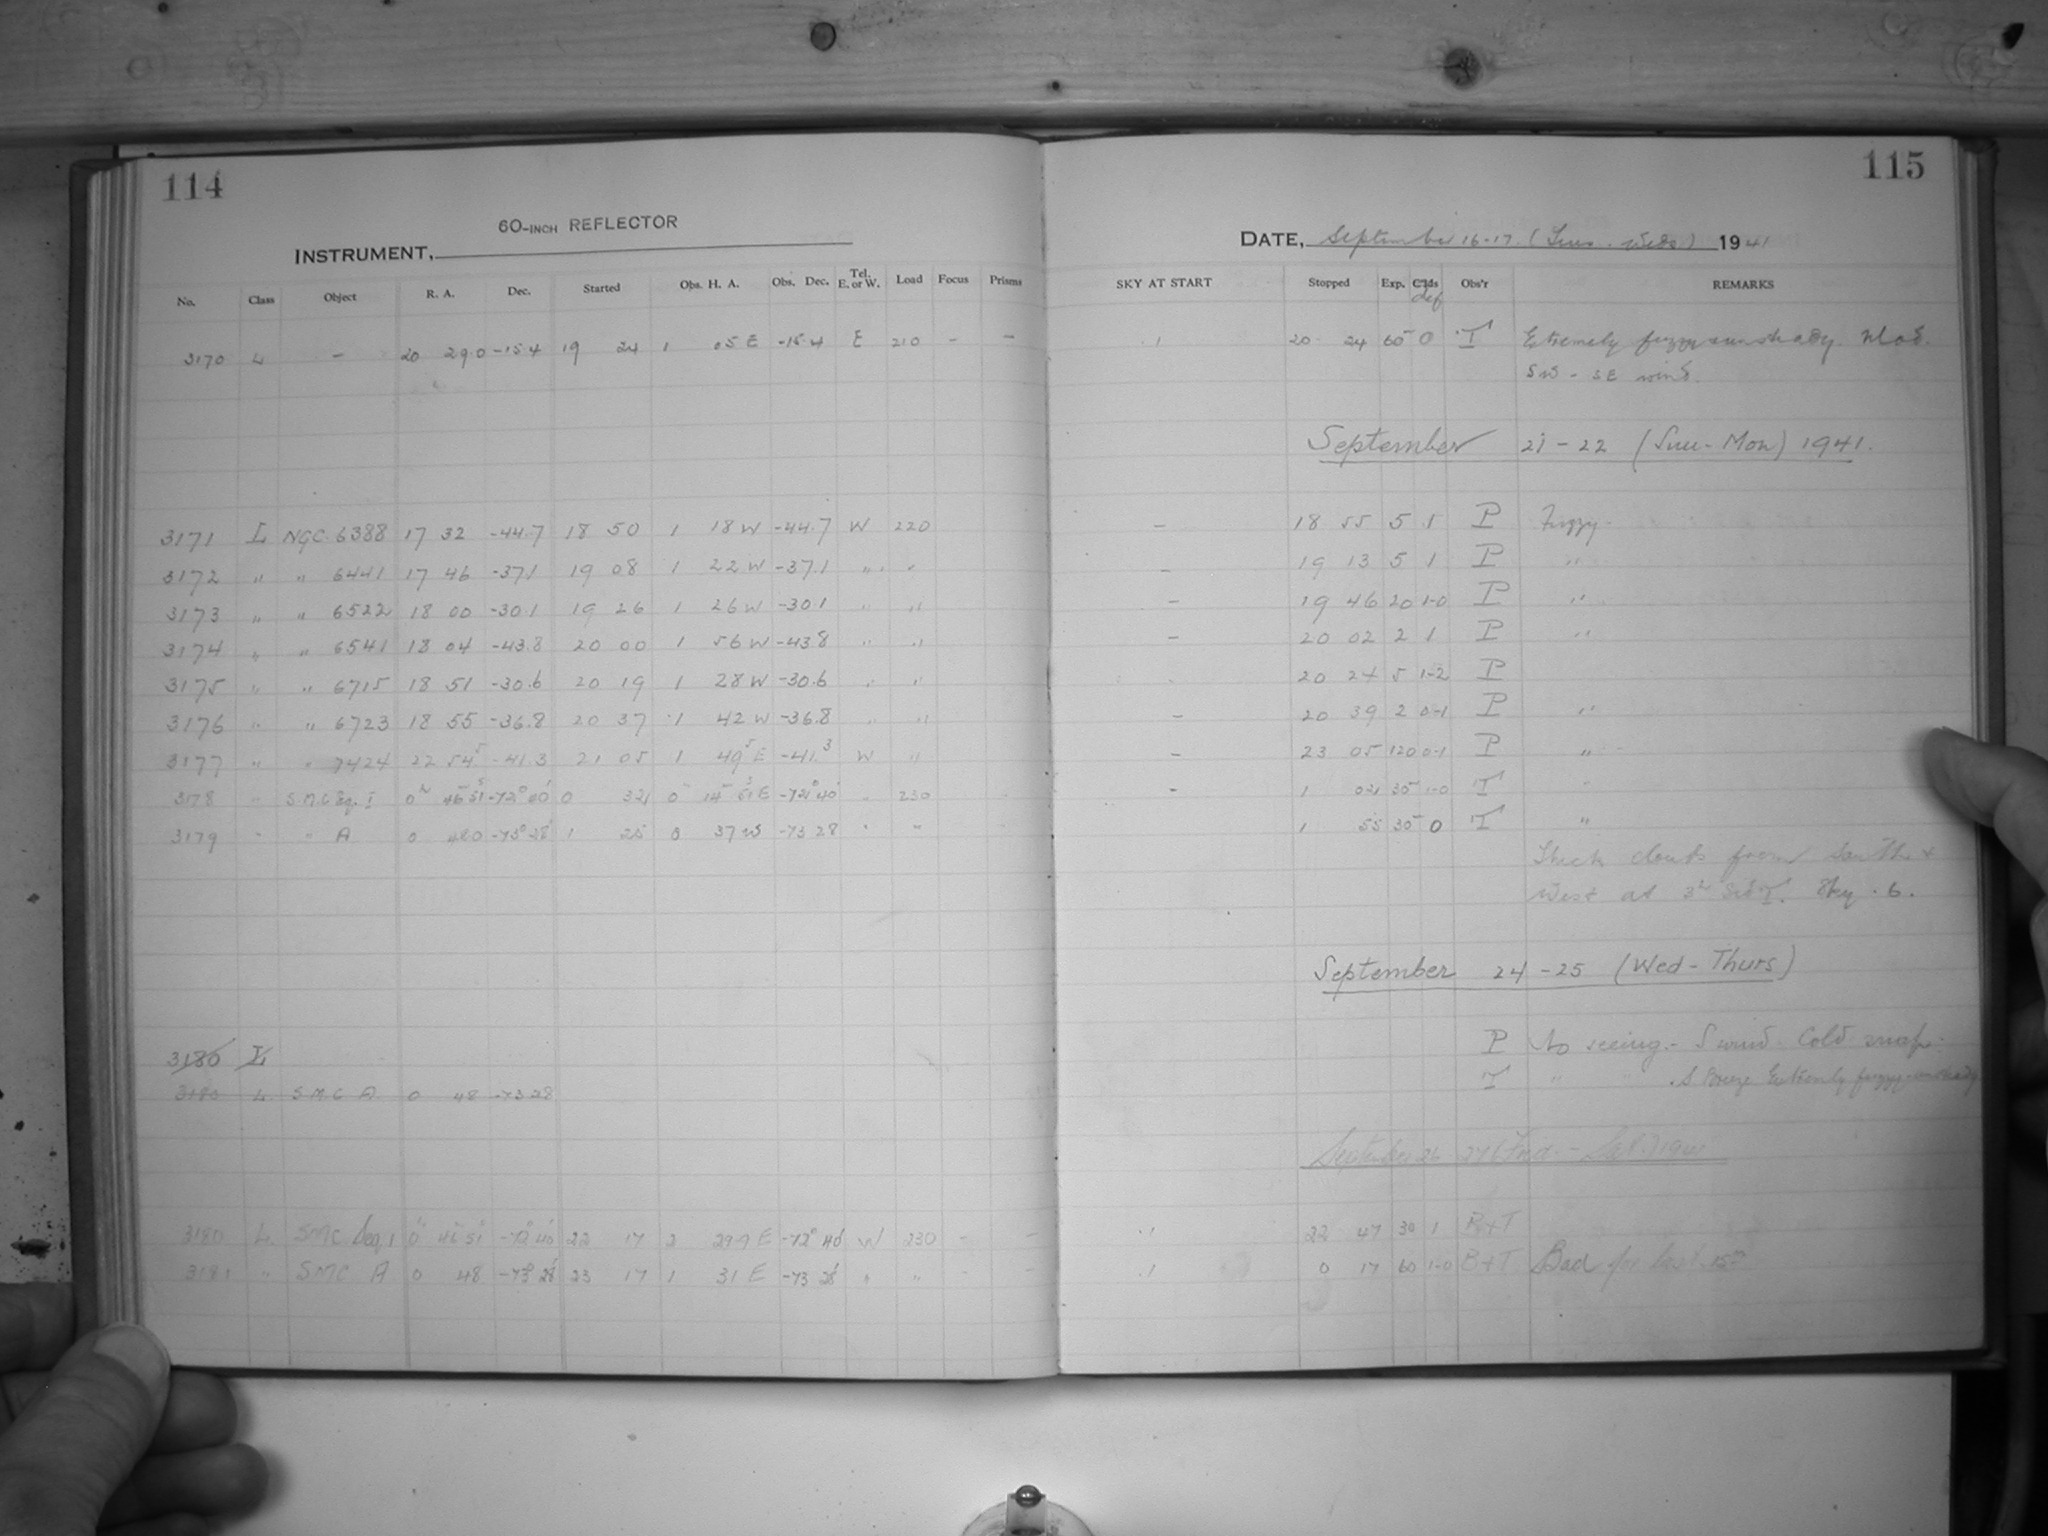 114
60-INCH REFLECTOR
INSTRUMENT,
No. Class Object R. A. Dec. Started Obs. H. A. Obs. Dec. Tel. E. or W. Load Focus Prisms
3170 L - 20 29.0 -15.4 19 24 1 05 E -15.4 E 210 - -
3171 L NGC 6388 17 32 -44.7 18 50 1 18 W -44.7 W 220
3172 " " 6441 17 46 -37.1 19 08 1 22 W -37.1 " "
3173 " " 6522 18 00 -30.1 19 26 1 26 W -30.1 " "
3174 " " 6541 18 04 -43.8 20 00 1 56 W -43.8 " "
3175 " " 6715 18 51 -30.6 20 19 1 28 W -30.6 " "
3176 " " 6723 18 55 -36.8 20 37 1 42 W -36.8 " "
3177 " " 7424 22 54.5 -41.3 21 05 1 49.5 E -41.3 W "
3178 " S.M.C. I 0 -72° 0 0 E -72° 40' " 230
3179 " " A 0 48.0 -73° 28' 1 25 0 37 W -73 28 " "
3180 L
3180 L S M C A 0 48 -73 28
3180 L SMC Seq. 1 0 46 51 -72° 40' 22 17 2 29.9 E -72° 40' W 230 - -
3181 " SMC A 0 48 -73° 28' 23 17 1 31 E -73 28' " "
115
DATE, September 16-17 (Tues. - Weds) 1941
SKY AT START Stopped Exp. Cl'ds Obs'r REMARKS
def
.1 20 24 60 0 T Extremely fuzzy & unsteady. Mod.
SW - SE wind.
September 21 - 22 (Sun - Mon) 1941.
- 18 55 5 1 P Fuzzy
- 19 13 5 1 P "
- 19 46 20 1-0 P "
- 20 02 2 1 P "
20 24 5 1-2 P
- 20 39 2 0-1 P "
- 23 05 120 0-1 P "
- 1 30 1-0 T "
1 55 30 0 T "
Thick clouds from South &
West at 3h Sid T. Sky .6.
September 24 - 25 (Wed - Thurs)
P No seeing - S wind. Cold snap.
T " " . S Breeze Extremely fuzzy - unsteady
September 26 - 27 (Frid. - Sat.) 1941
.1 22 47 30 1 B+T
.1 0 17 60 1-0 B+T Bad for last 15m